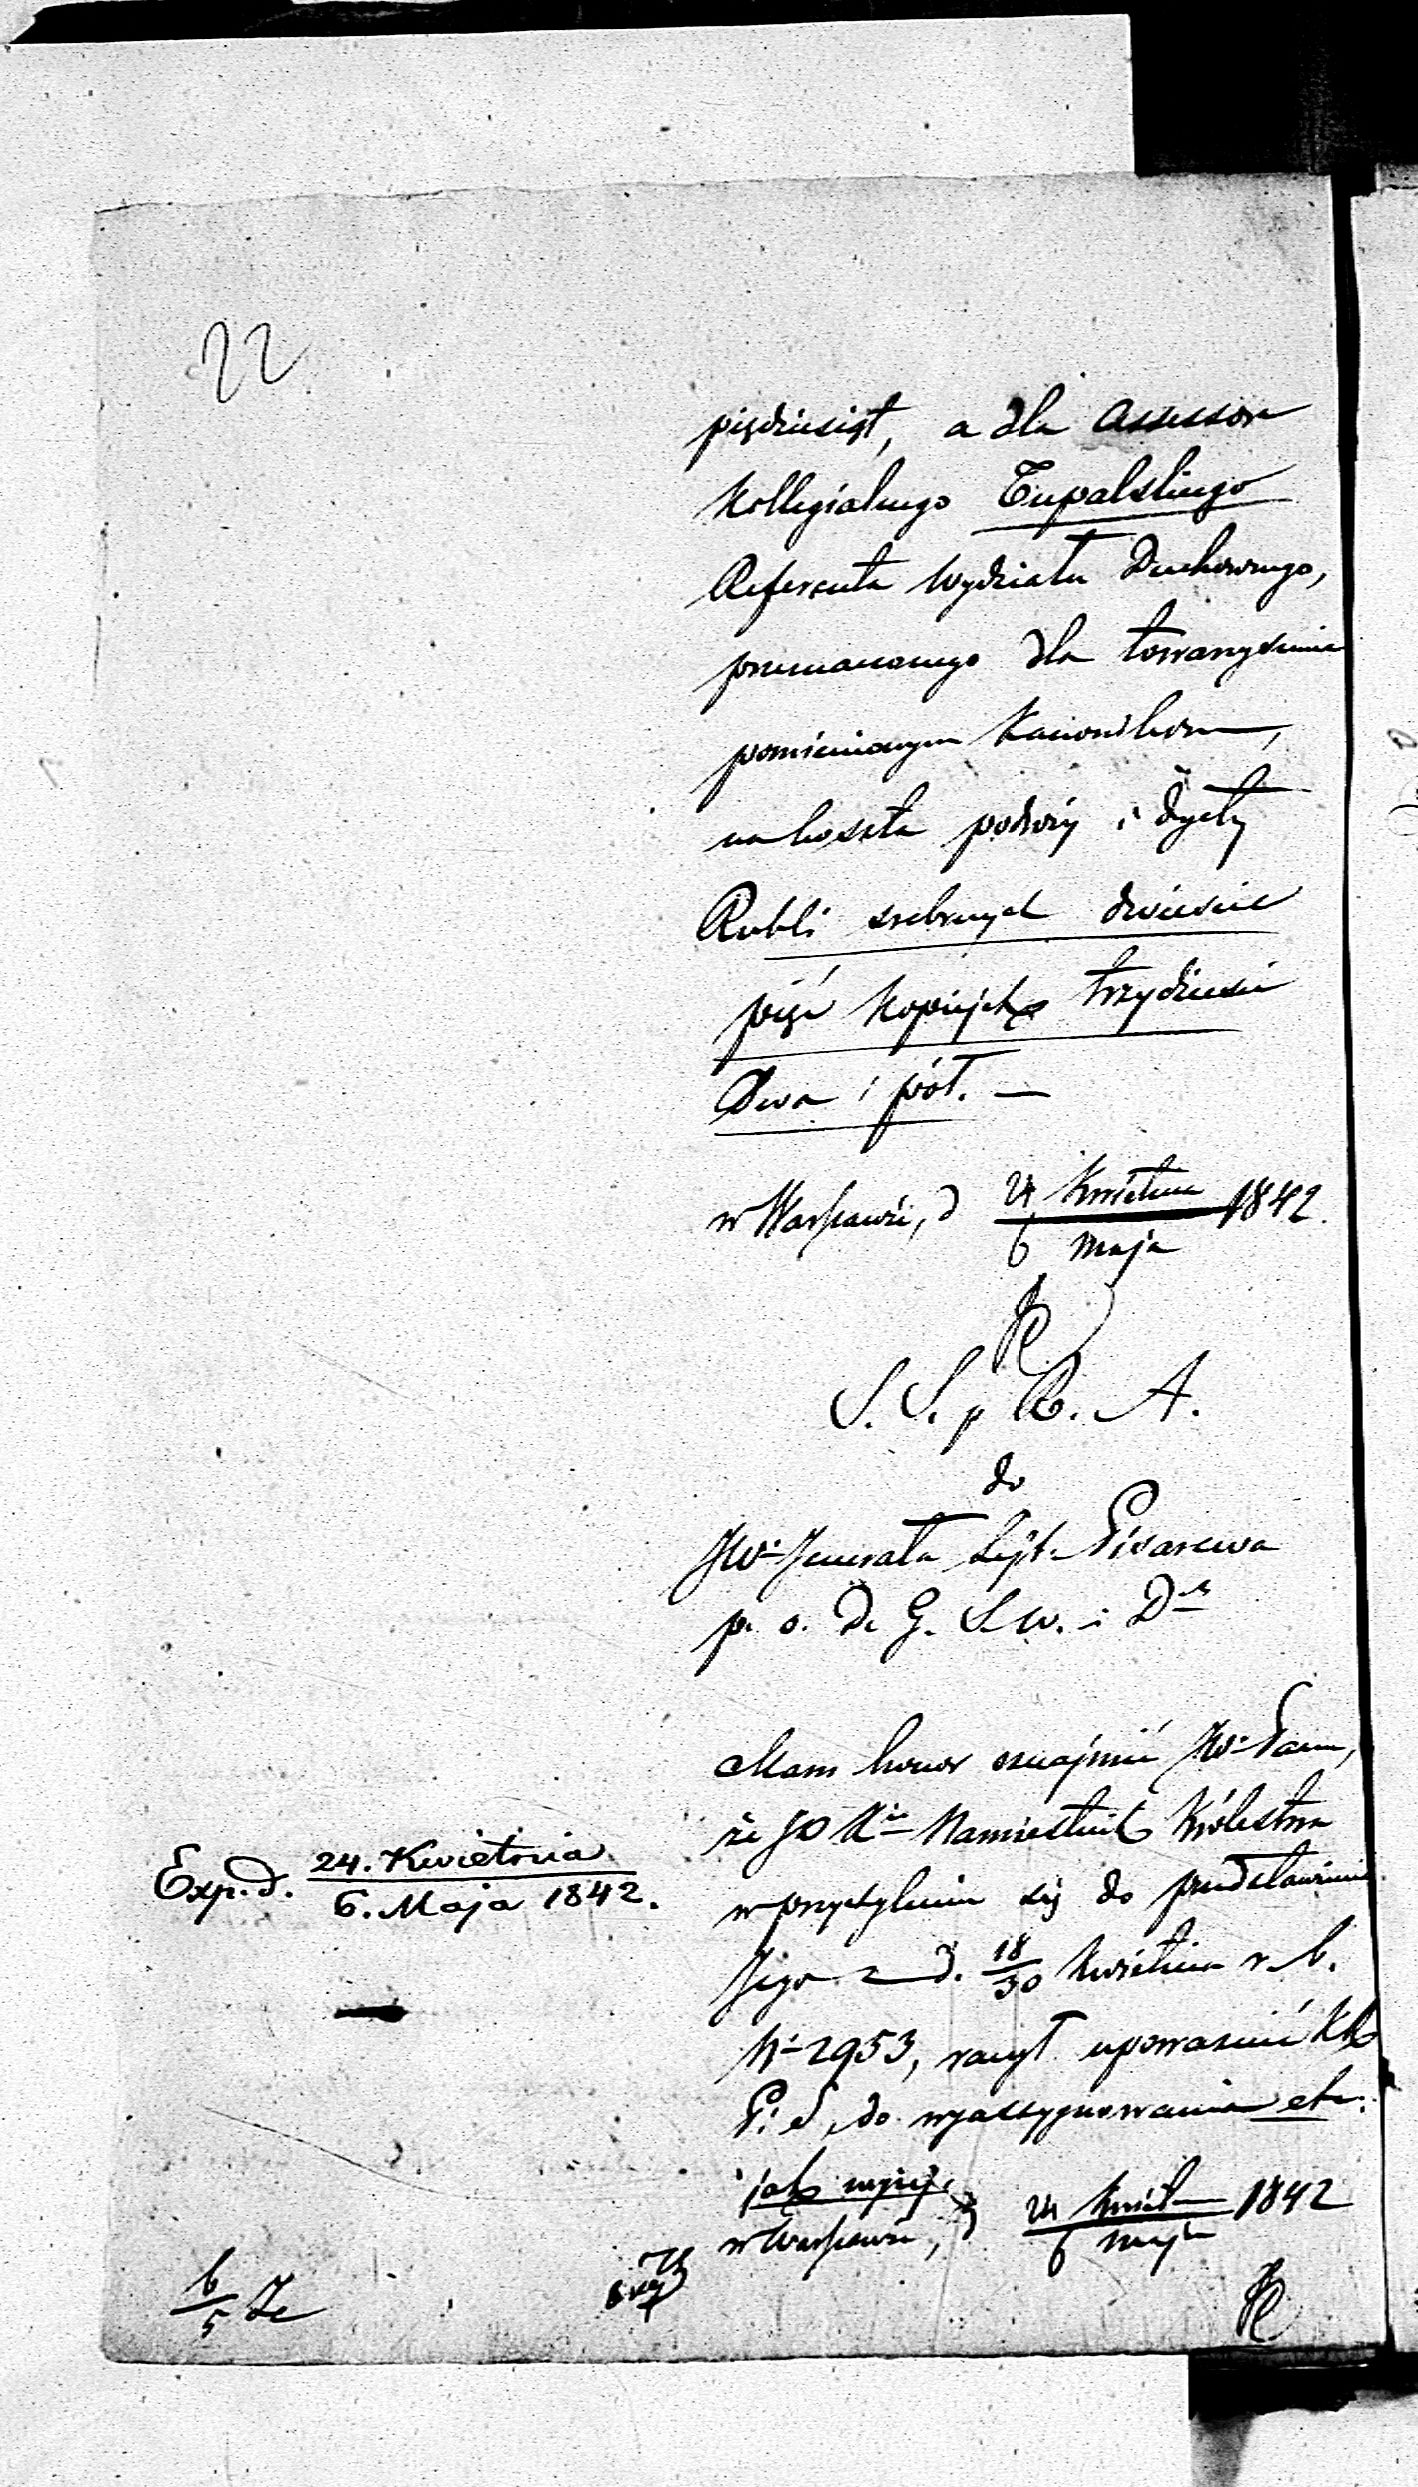 22
pięćdziesiąt, a dla Assessora
Kollegialnego Tupalskiego
Referenta Wydziału Duchownego,
przeznaczonego dla towarzyszenia
pomienionym Kanonikom,
na koszta podróży i dyety
Rubli srebrnych dwieście
pięć Kopiejek trzydzieści
Dwa i pół. —
w Warszawie, d 24 Kwietnia / 6 Maja 1842.
S. S. p R. A.
do
JW. Jenerała Lejt. Pisarewa
p. o. D. G. S. W. i D.
Mam honor oznajmić JW. Panu,
że JO Xże Namiestnik Królestwa
w przychyleniu się do przedstawienia
Jego z d. 18/30 Kwietnia r. b.
Nr 2953, raczył upoważnić KR
P. i S. do wyassygnowania etc.
jak wyżej.
w Warszawie, d 24 Kwiet / 6 maja 1842
Exp. d. 24. Kwietnia / 6. Maja 1842.
6/5